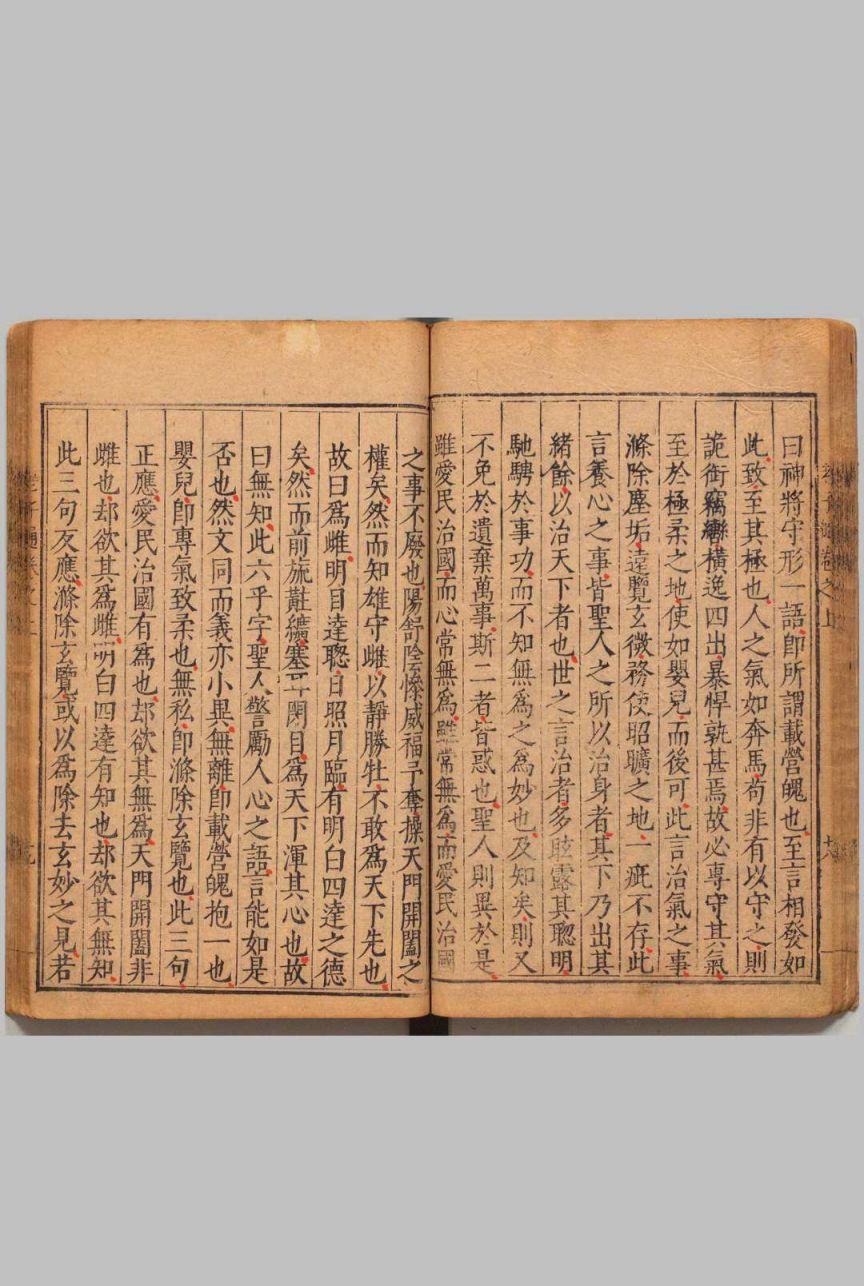 曰神將守形一語即所謂載營魄也至言相發如
此致至其極也人之氣如奔馬苟非有以守之則
詭銜竊轡橫逸四出暴悍孰甚焉故必專守其氣
至於極柔之地使如嬰兒而後可此言治氣之事
滌除塵垢遠覽玄微務使昭曠之地一疵不存此
言養心之事皆聖人之所以治身者其下乃出其
緒餘以治天下者也世之言治者多眩露其聰明
馳騁於事功而不知無爲之爲妙也及知矣則又
不免於遺棄萬事斯二者皆惑也聖人則異於是
雖愛民治國而心常無爲雖常無爲而愛民治國
之事不廢也陽舒陰慘威福予奪操天門開闔之
權矣然而知雄守雌以靜勝牡不敢爲天下先也
故曰爲雌明目達聰日照月臨有明白四達之德
矣然而前旒黈纊塞耳閑目爲天下渾其心也故
曰無知此六乎字聖人警勵人心之語言能如是
否也然文同而義亦小異無離即載營魄抱一也
嬰兒即專氣致柔也無私即滌除玄覽也此三句
正應愛民治國有爲也却欲其無爲天門開闔非
雌也却欲其爲雌明白四達有知也却欲其無知
此三句反應滌除玄覽或以爲除去玄妙之見若